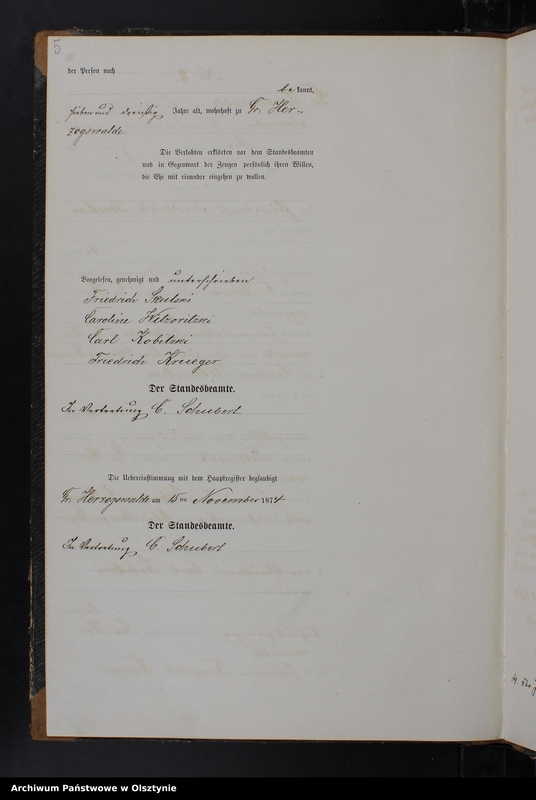 der Person nach
be kannt,
sieben und dreissig Jahre alt, wohnhaft zu Gr. Her-
zogswalde
Die Verlobten erklärten vor dem Standesbeamten
und in Gegenwart der Zeugen persönlich ihren Willen,
die Ehe mit einander eingehen zu wollen.
Vorgelesen, genehmigt und unterschrieben
Friedrich Skulski
Caroline Witzoritzki
Carl Kobitzki
Friedrich Krueger
Der Standesbeamte.
In Vertretung C. Schubert
Die Uebereinstimmung mit dem Hauptregister beglaubigt
Gr. Herzogswalde am 15 ten November 1874
Der Standesbeamte.
In Vertretung C. Schubert
Archiwum Państwowe w Olsztynie